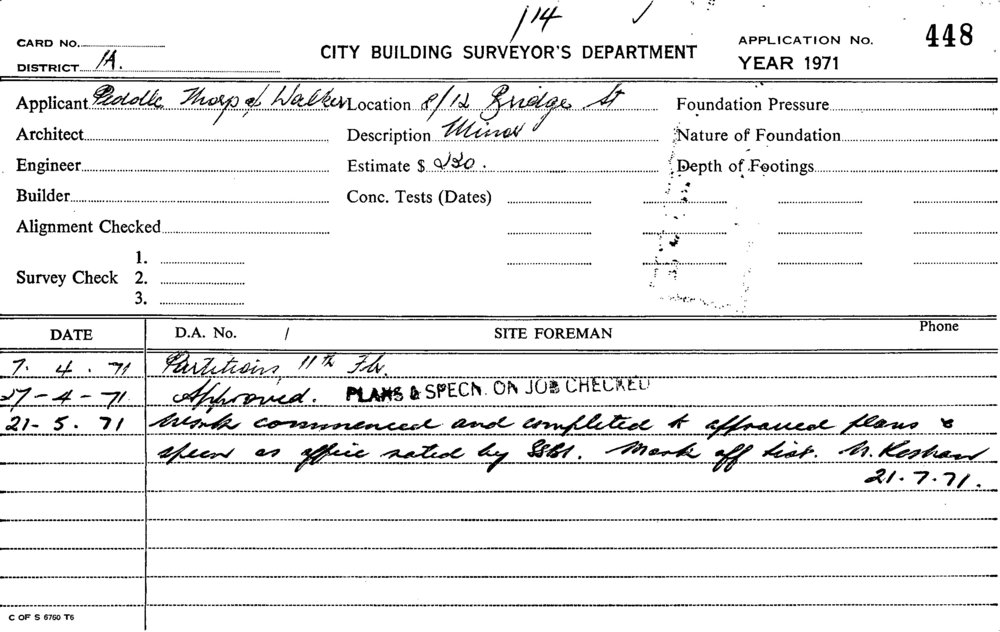 /14 ✓
CARD No.
CITY BUILDING SURVEYOR'S DEPARTMENT
APPLICATION No. 448
DISTRICT 1A.
YEAR 1971
Applicant Peddle Thorp & Walker Location 8/12 Bridge St Foundation Pressure
Architect Description Minor Nature of Foundation
Engineer Estimate $ 230. Depth of Footings
Builder Conc. Tests (Dates)
Alignment Checked
1.
Survey Check 2.
3.
DATE D.A. No. / SITE FOREMAN Phone
7. 4. 71 Partitions, 11th Flr.
27-4-71 Approved. PLANS & SPECN. ON JOB CHECKED
21-5.71 Work commenced and completed to approved plans &
specn as office noted by Mark off list.
21.7.71.
C OF S 6760 T6